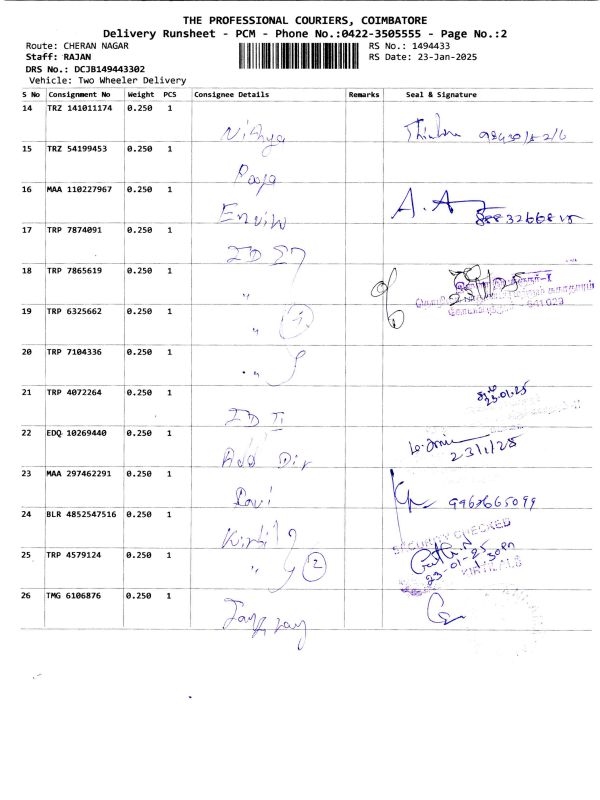 THE PROFESSIONAL COURIERS, COIMBATORE
Delivery Runsheet - PCM - Phone No.:0422-3505555 - Page No.:2
Route: CHERAN NAGAR RS No.: 1494433
Staff: RAJAN RS Date: 23-Jan-2025
DRS No.: DCJB149443302
Vehicle: Two Wheeler Delivery
S No Consignment No Weight PCS Consignee Details Remarks Seal & Signature
14 TRZ 141011174 0.250 1
Nithya
15 TRZ 54199453 0.250 1
16 MAA 110227967 0.250 1
A. A
17 TRP 7874091 0.250 1
18 TRP 7865619 0.250 1
"
19 TRP 6325662 0.250 1
" 4
20 TRP 7104336 0.250 1
"
21 TRP 4072264 0.250 1
23.01.25
22 EDQ 10269440 0.250 1
Add Dir 23/1/25
23 MAA 297462291 0.250 1
Ravi
24 BLR 4852547516 0.250 1
SECURITY CHECKED
25 TRP 4579124 0.250 1
" 2 23-01-25
KIRTILALS
26 TMG 6106876 0.250 1